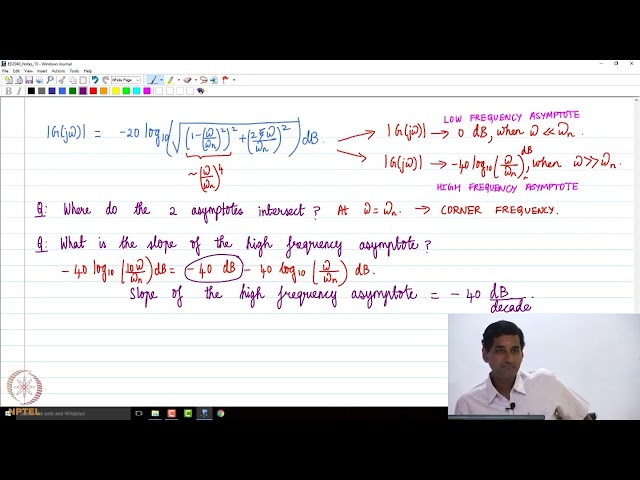 ED2040_Notes_10 - Windows Journal
File Edit View Insert Actions Tools Help
Whole Page
LOW FREQUENCY ASYMPTOTE
|G(jω)| = -20 log₁₀(√((1-(ω/ωₙ)²)² + (2ξω/ωₙ)²)) dB.
|G(jω)| → 0 dB, when ω ≪ ωₙ.
~(ω/ωₙ)⁴
|G(jω)| → -40 log₁₀(ω/ωₙ) dB, when ω ≫ ωₙ.
HIGH FREQUENCY ASYMPTOTE
Q: Where do the 2 asymptotes intersect? At ω = ωₙ. → CORNER FREQUENCY.
Q: What is the slope of the high frequency asymptote?
-40 log₁₀(10ω/ωₙ) dB = -40 dB - 40 log₁₀(ω/ωₙ) dB.
Slope of the high frequency asymptote = -40 dB/decade.
NPTEL
the web and Windows